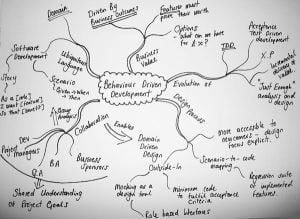 Domain
Driven By
Business Outcomes
Features must
prove their worth
Options
"What can we have
for £x?"
Business
Value
Acceptance
Test
Driven development
TDD
XP
Just Enough
analysis and
design
Software
Development
Ubiquitous
Language
Story
As a [role]
I want [feature]
so that [benefit]
Scenario
Given → When
→ Then
Behaviour Driven
Development
Evolution of
Design Process
Collaboration
Enables
DEV
Project Managers
BA
QA
Business
Sponsors
Shared Understanding
of Project Goals
Domain
Driven
Design
Outside-In
Mocking as a
design tool
Role based interfaces
minimum code
to satisfy acceptance
Criteria
Scenario-to code
mapping
More accessible to
newcomers - design
focus explicit.
Regression suite
of implemented
features